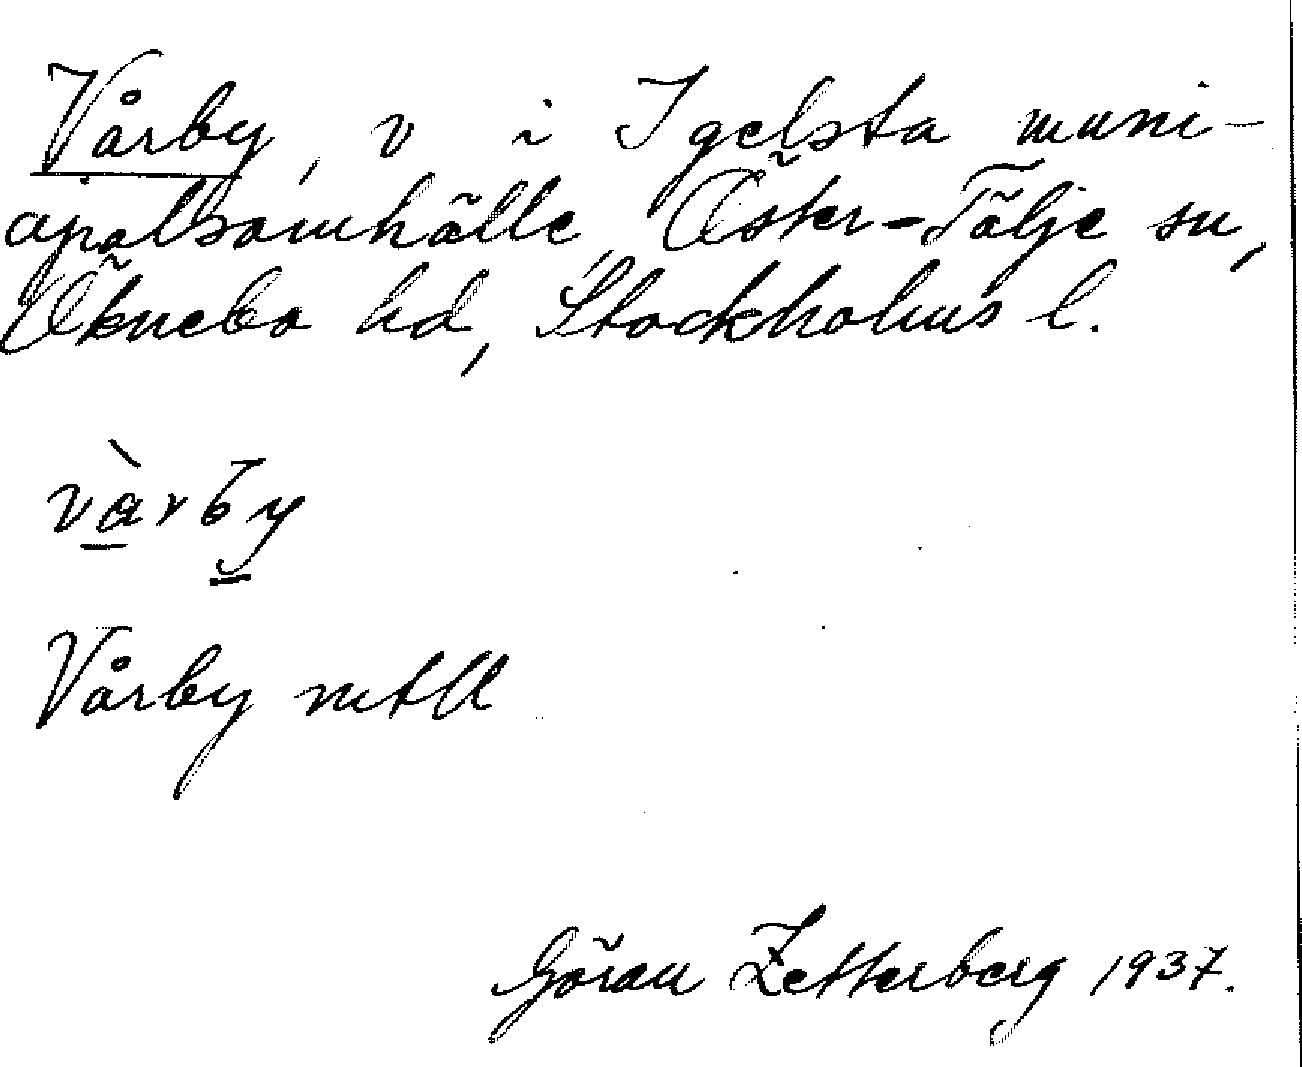 Vårby, v i Igelsta muni-
cipalsamhälle, Öster-Tälje sn,
Öknebo hd, Stockholms l.
vàrby
Vårby mtll
Göran Zetterberg 1937.